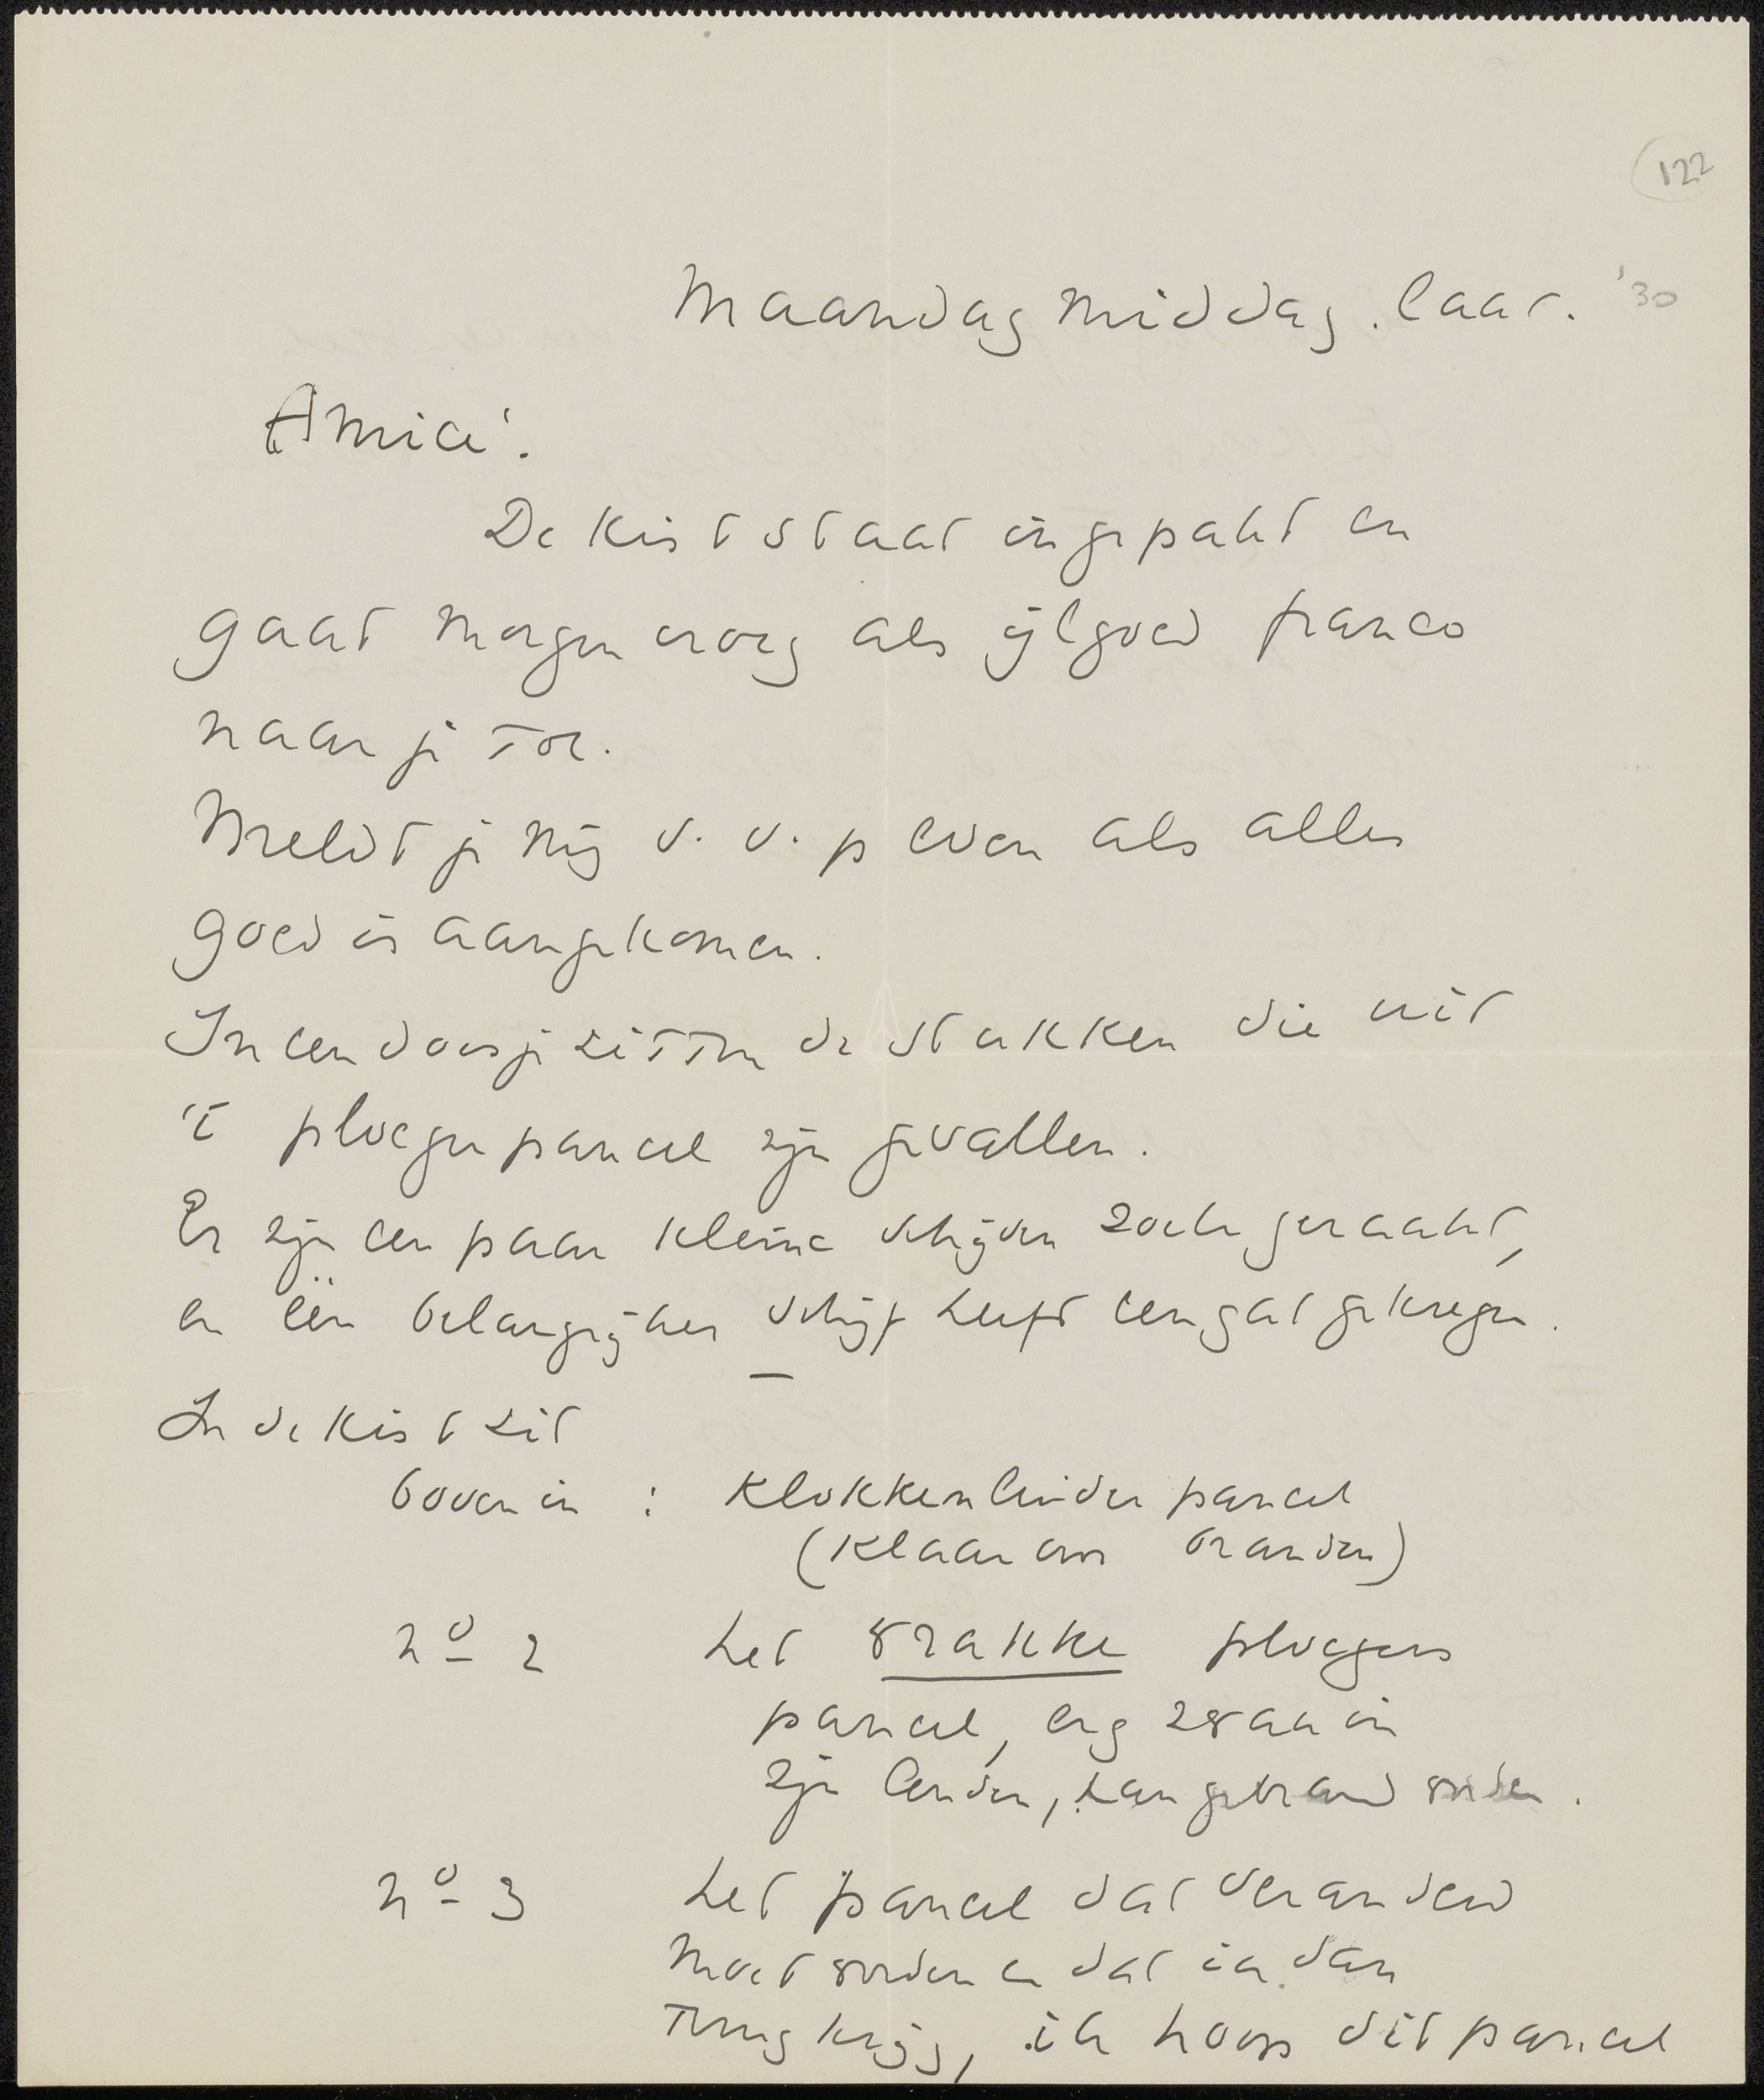 122
Maandag Middag. Laar. '30
Amice!
De kist staat ingepakt en
gaat morgen vroeg als ijlgoed franco
naar je toe.
Meldt je mij s.v.p even als alles
goed is aangekomen.
In een doosje zitten de stukken die uit
't ploegerpaneel zijn gevallen.
Er zijn een paar kleine schijven zoek geraakt,
en één belangrijker schijf heeft een gat gekregen.
In de kist zit
bovenin : Klokkenluider paneel
(klaar om branden)
no 2 het wrakke ploegers
paneel, erg zwak in
zijn lenden, kan gebrand worden.
no 3 het paneel dat veranderd
moet worden en dat ik dan
terug krijg, ik hoop dit paneel